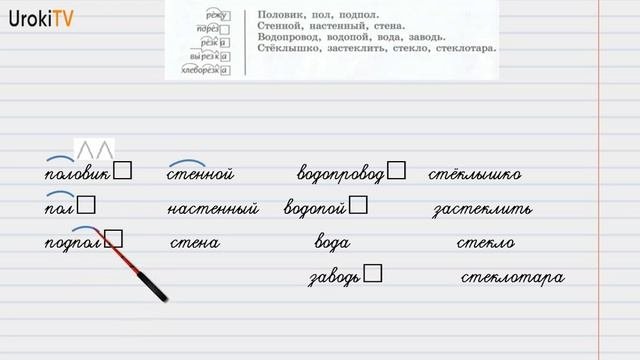 UrokiTV
режу
порез
резка
вырезка
хлеборезка
Половик, пол, подпол.
Стенной, настенный, стена.
Водопровод, водопой, вода, заводь.
Стёклышко, застеклить, стекло, стеклотара.
половик стенной водопровод стёклышко
пол настенный водопой застеклить
подпол стена вода стекло
заводь стеклотара